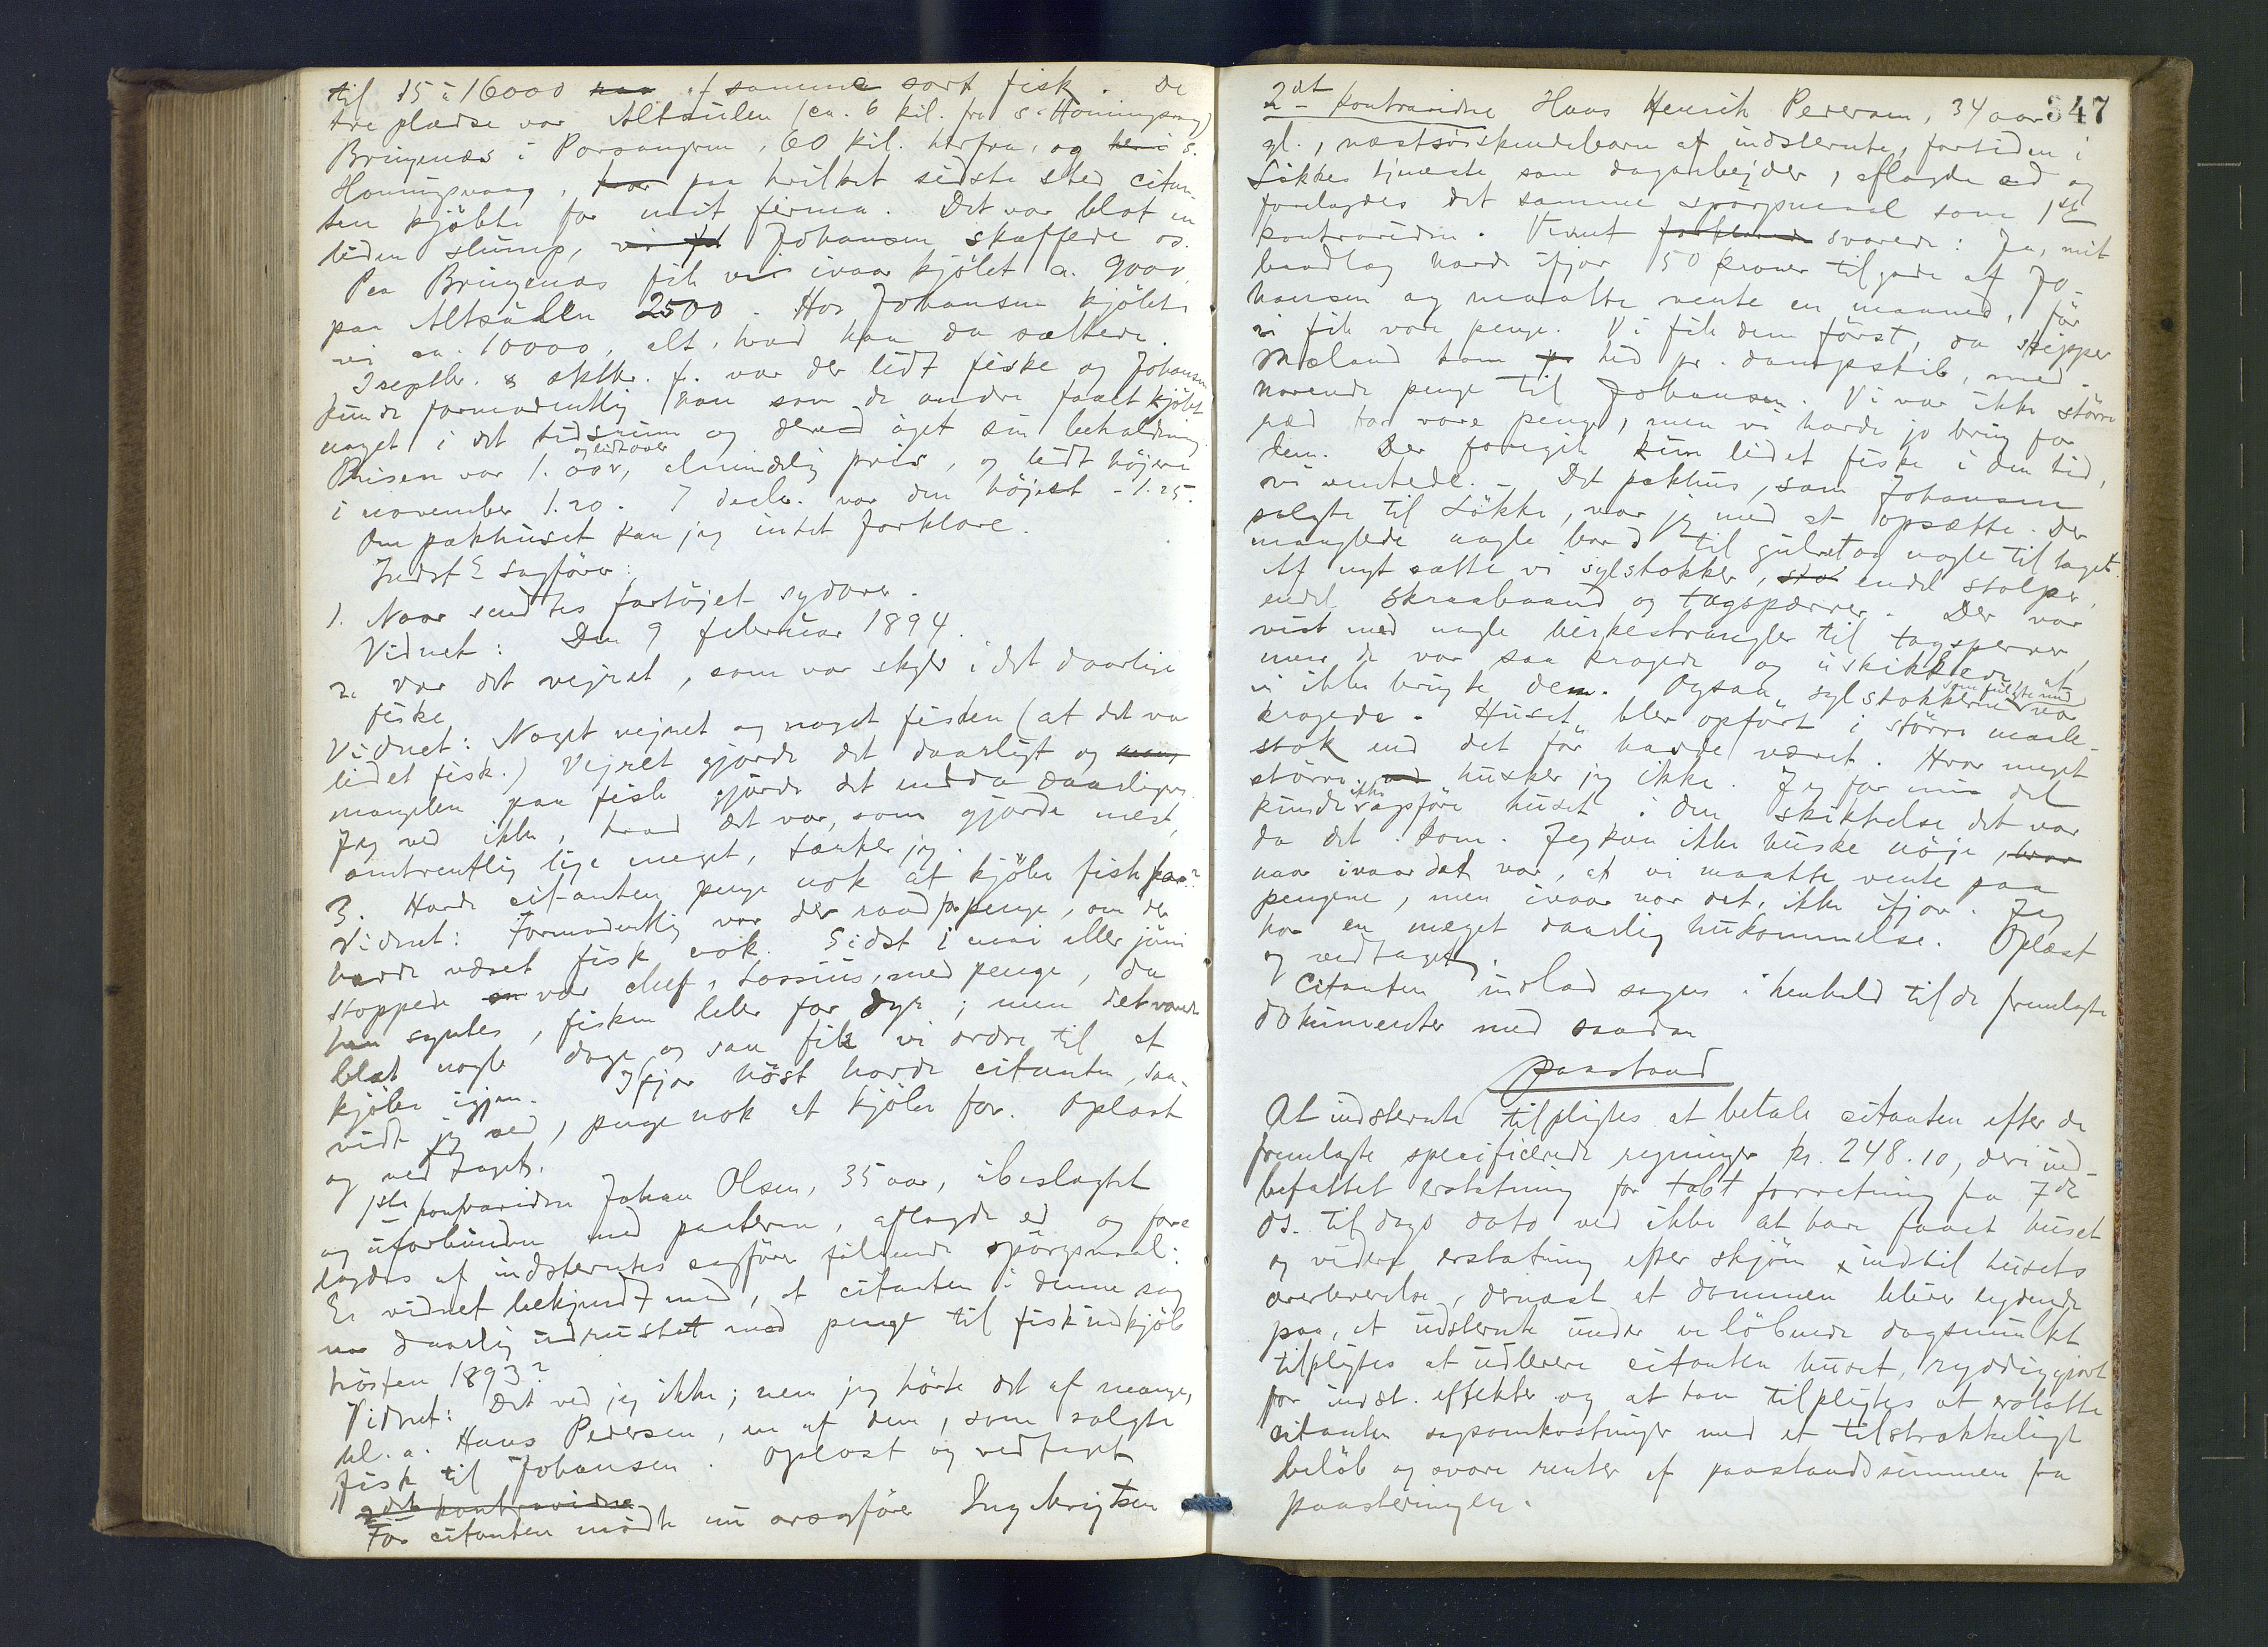 til 15 à 16000 af samme sort fisk. De
tre pladse var Altsulen (ca. 6 kil. fra s. Honingsvaag)
Bringnæs i Porsangeren, 60 kil. herfra, og s.
Honingsvaag, paa hvilket sidste sted citan-
ten kjöbte for mit firma. Det var blot en
liden slump, Johansen skaffede os.
Paa Bringnæs fik vi ivaar kjöbt ca. 9000,
paa Altsulen 2500. Hos Johansen kjöbte
vi ca. 10000, alt, hvad han da saltede.
I septbr. & oktbr. f. var der lidt fiske og Johansen
kunde formodentlig som de andre faaet kjöbt
noget i det tidsrum og derved öget sin beholdning.
Prisen var 1.00 og lidt over, almindelig pris, og lidt höjere
i november 1.20. I decbr. var den höjest - 1.25.
Om pakhuset kan jeg intet forklare.
Indst's sagförer:
1. Naar sendtes fartöjet sydover.
Vidnet: Den 9 februar 1894.
2. Var det vejret, som var skyld i det daarlige
fiske
Vidnet: Noget vejret og noget fisken (at det var
lidet fisk.) Vejret gjorde det daarligt og
mangelen paa fisk gjorde det endda daarligere.
Jeg ved ikke, hvad det var, som gjorde mest,
omtrentlig lige meget, tænker jeg.
3. Havde citanten penge nok at kjöbe fisk for?
Vidnet: Formodentlig var der raad for penge, om der
havde været fisk nok. Sidst i mai eller juni
stoppede vor chef, Lossius, med penge, da
han syntes, fisken blev for dyr; men det varede
blot nogle dage og saa fik vi ordre til at
kjöbe igjen. Ifjor höst havde citanten, saa-
vidt jeg ved, penge nok at kjöbe for. Oplæst
og vedtaget.
1ste kontravidne Johan Olsen, 35 aar, ubeslægtet
og uforbunden med parterne, aflagde ed og fore-
lagdes af indstevntes sagförer fölgende spörgsmaal:
Er vidnet bekjendt med, at citanten i denne sag
var daarlig udrustet med penge til fiskindkjöb
hösten 1893?
Vidnet: Det ved jeg ikke; men jeg hörte det af mange,
bl. a. Hans Pedersen, en af dem, som solgte
fisk til Johansen. Oplæst og vedtaget
2det kontravidne
For citanten mödte nu ovrsagförer Ingebrigtsen
347
2det kontravidne Hans Henrik Pedersen, 34 aar
gl., næstsöskendebarn af indstevnte, fortiden i
Lökkes tjeneste som dagarbejder, aflagde ed og
forelagdes det samme spörgsmaal som 1ste
kontravidne. Vidnet svarede: Ja, mit
baadlag havde ifjor 50 kroner tilgode af Jo-
hansen og maatte vente en maaned, för
vi fik vore penge. Vi fik dem först, da skipper
Mæland kom hid pr. dampskib, med-
havende penge til Johansen. Vi var ikke större
ræd for vore penge, men vi havde jo brug for
dem. Der foregik kun lidet fiske i den tid,
vi ventede. - Det pakhus, som Johansen
solgte til Lökke, var jeg med at opsætte. Der
manglede nogle bord til gulvet og nogle til taget.
Af nyt satte vi sylstokker, endel stolper,
endel skraabaand og tagspærrer. Der var
vist med nogle birkestrangler til tagsperrer,
men de var saa krogede og uskikkede, at
vi ikke brugte dem. Ogsaa sylstokkerne som fulgte med var
krogede. Huset blev opfört i större maale-
stok end det för havde været. Hvor meget
större husker jeg ikke. Jeg for min del
kunde ikke opföre huset i den skikkelse det var
da det kom. Jeg kan ikke huske nöje,
naar ivaar det var, at vi maatte vente paa
pengene, men ivaar var det, ikke ifjor. Jeg
har en meget daarlig hukommelse. Oplæst
og vedtaget.
Citanten indlod sagen i henhold til de fremlagte
dokumenter med saadan
paastand
At indstevnte tilpligtes at betale citanten efter de
fremlagte specificerede regninger kr. 248.10, deri ind-
befattet erstatning for tabt forretning fra 7de
ds. til dags dato ved ikke at have faaet huset
og videre erstatning efter skjön indtil husets
overleverelse, dernæst at dommen bliver lydende
paa, at indstevnte under en löbende dagsmulkt
tilpligtes at udlevere citanten huset, ryddiggjort
for indst. effekter og at han tilpligtes at erstatte
citanten sagsomkostninger med et tilstrækkeligt
belöb og svare renter af paastandssummen fra
paastevningen.